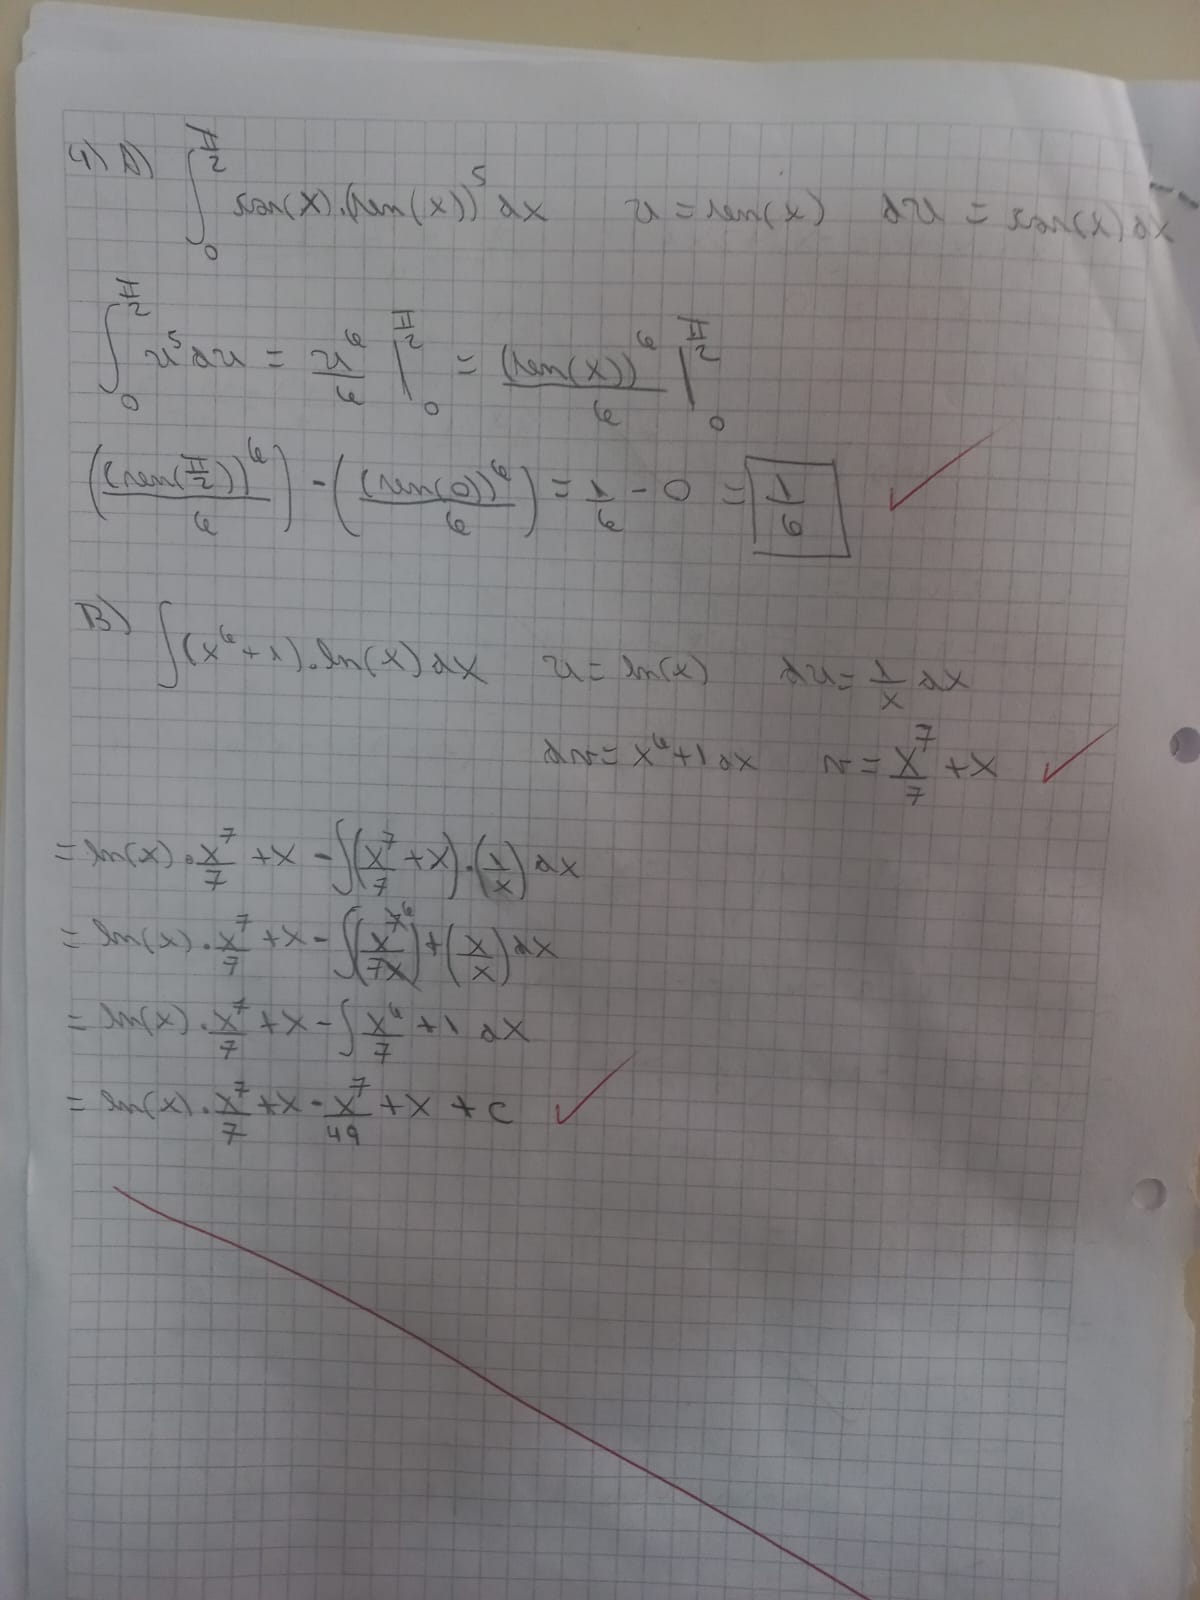 4) A) ∫₀^(π/2) cos(x).(sen(x))⁵ dx   u = sen(x)   du = cos(x) dx
∫₀^(π/2) u⁵ du = u⁶/6 |₀^(π/2) = (sen(x))⁶/6 |₀^(π/2)
((sen(π/2))⁶/6) - ((sen(0))⁶/6) = 1/6 - 0 = 1/6
B) ∫(x⁶+1).ln(x) dx   u = ln(x)   du = 1/x dx
dv = x⁶+1 dx   v = x⁷/7 + x
= ln(x).x⁷/7 + x - ∫(x⁷/7 + x).(1/x) dx
= ln(x).x⁷/7 + x - ∫(x⁷/7x) + (x/x) dx
= ln(x).x⁷/7 + x - ∫ x⁶/7 + 1 dx
= ln(x).x⁷/7 + x - x⁷/49 + x + c